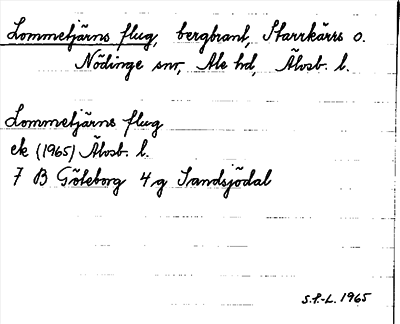 Lommetjärns flug, bergbrant, Starrkärrs o.
Nödinge snr, Ale hd, Älvsb. l.
Lommetjärns flug
ek (1965) Älvsb. l.
7 B Göteborg 4 g Sandsjödal
S.P.-L. 1965